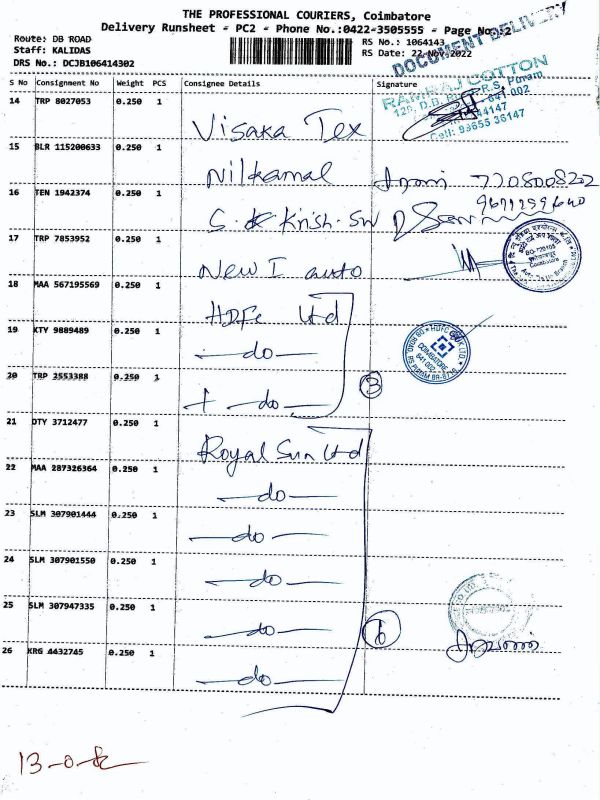 THE PROFESSIONAL COURIERS, Coimbatore
Delivery Runsheet - PC2 - Phone No.:0422-3505555 - Page No.:2
Route: DB ROAD
Staff: KALIDAS
DRS No.: DCJB106414302
RS No.: 1064143
RS Date: 22-Nov-2022
DOCUMENT DELIVERY
S No Consignment No Weight PCS Consignee Details Signature
RAMRAJ COTTON
641 002
Cell: 93655 36147
14 TRP 8027053 0.250 1 Visaka Tex
15 BLR 115200633 0.250 1 Nilkamal
7708008202
16 TEN 1942374 0.250 1
17 TRP 7853952 0.250 1 New I auto
18 MAA 567195569 0.250 1 HDFC Ltd
19 KTY 9889489 0.250 1 -do-
COIMBATORE
641 002
20 TRP 2553388 0.250 1 -do-
3
21 DTY 3712477 0.250 1 Royal Sun Ltd
22 MAA 287326364 0.250 1 -do-
23 SLM 307901444 0.250 1 -do-
24 SLM 307901550 0.250 1 -do-
25 SLM 307947335 0.250 1 -do-
6
26 KRG 4432745 0.250 1 -do-